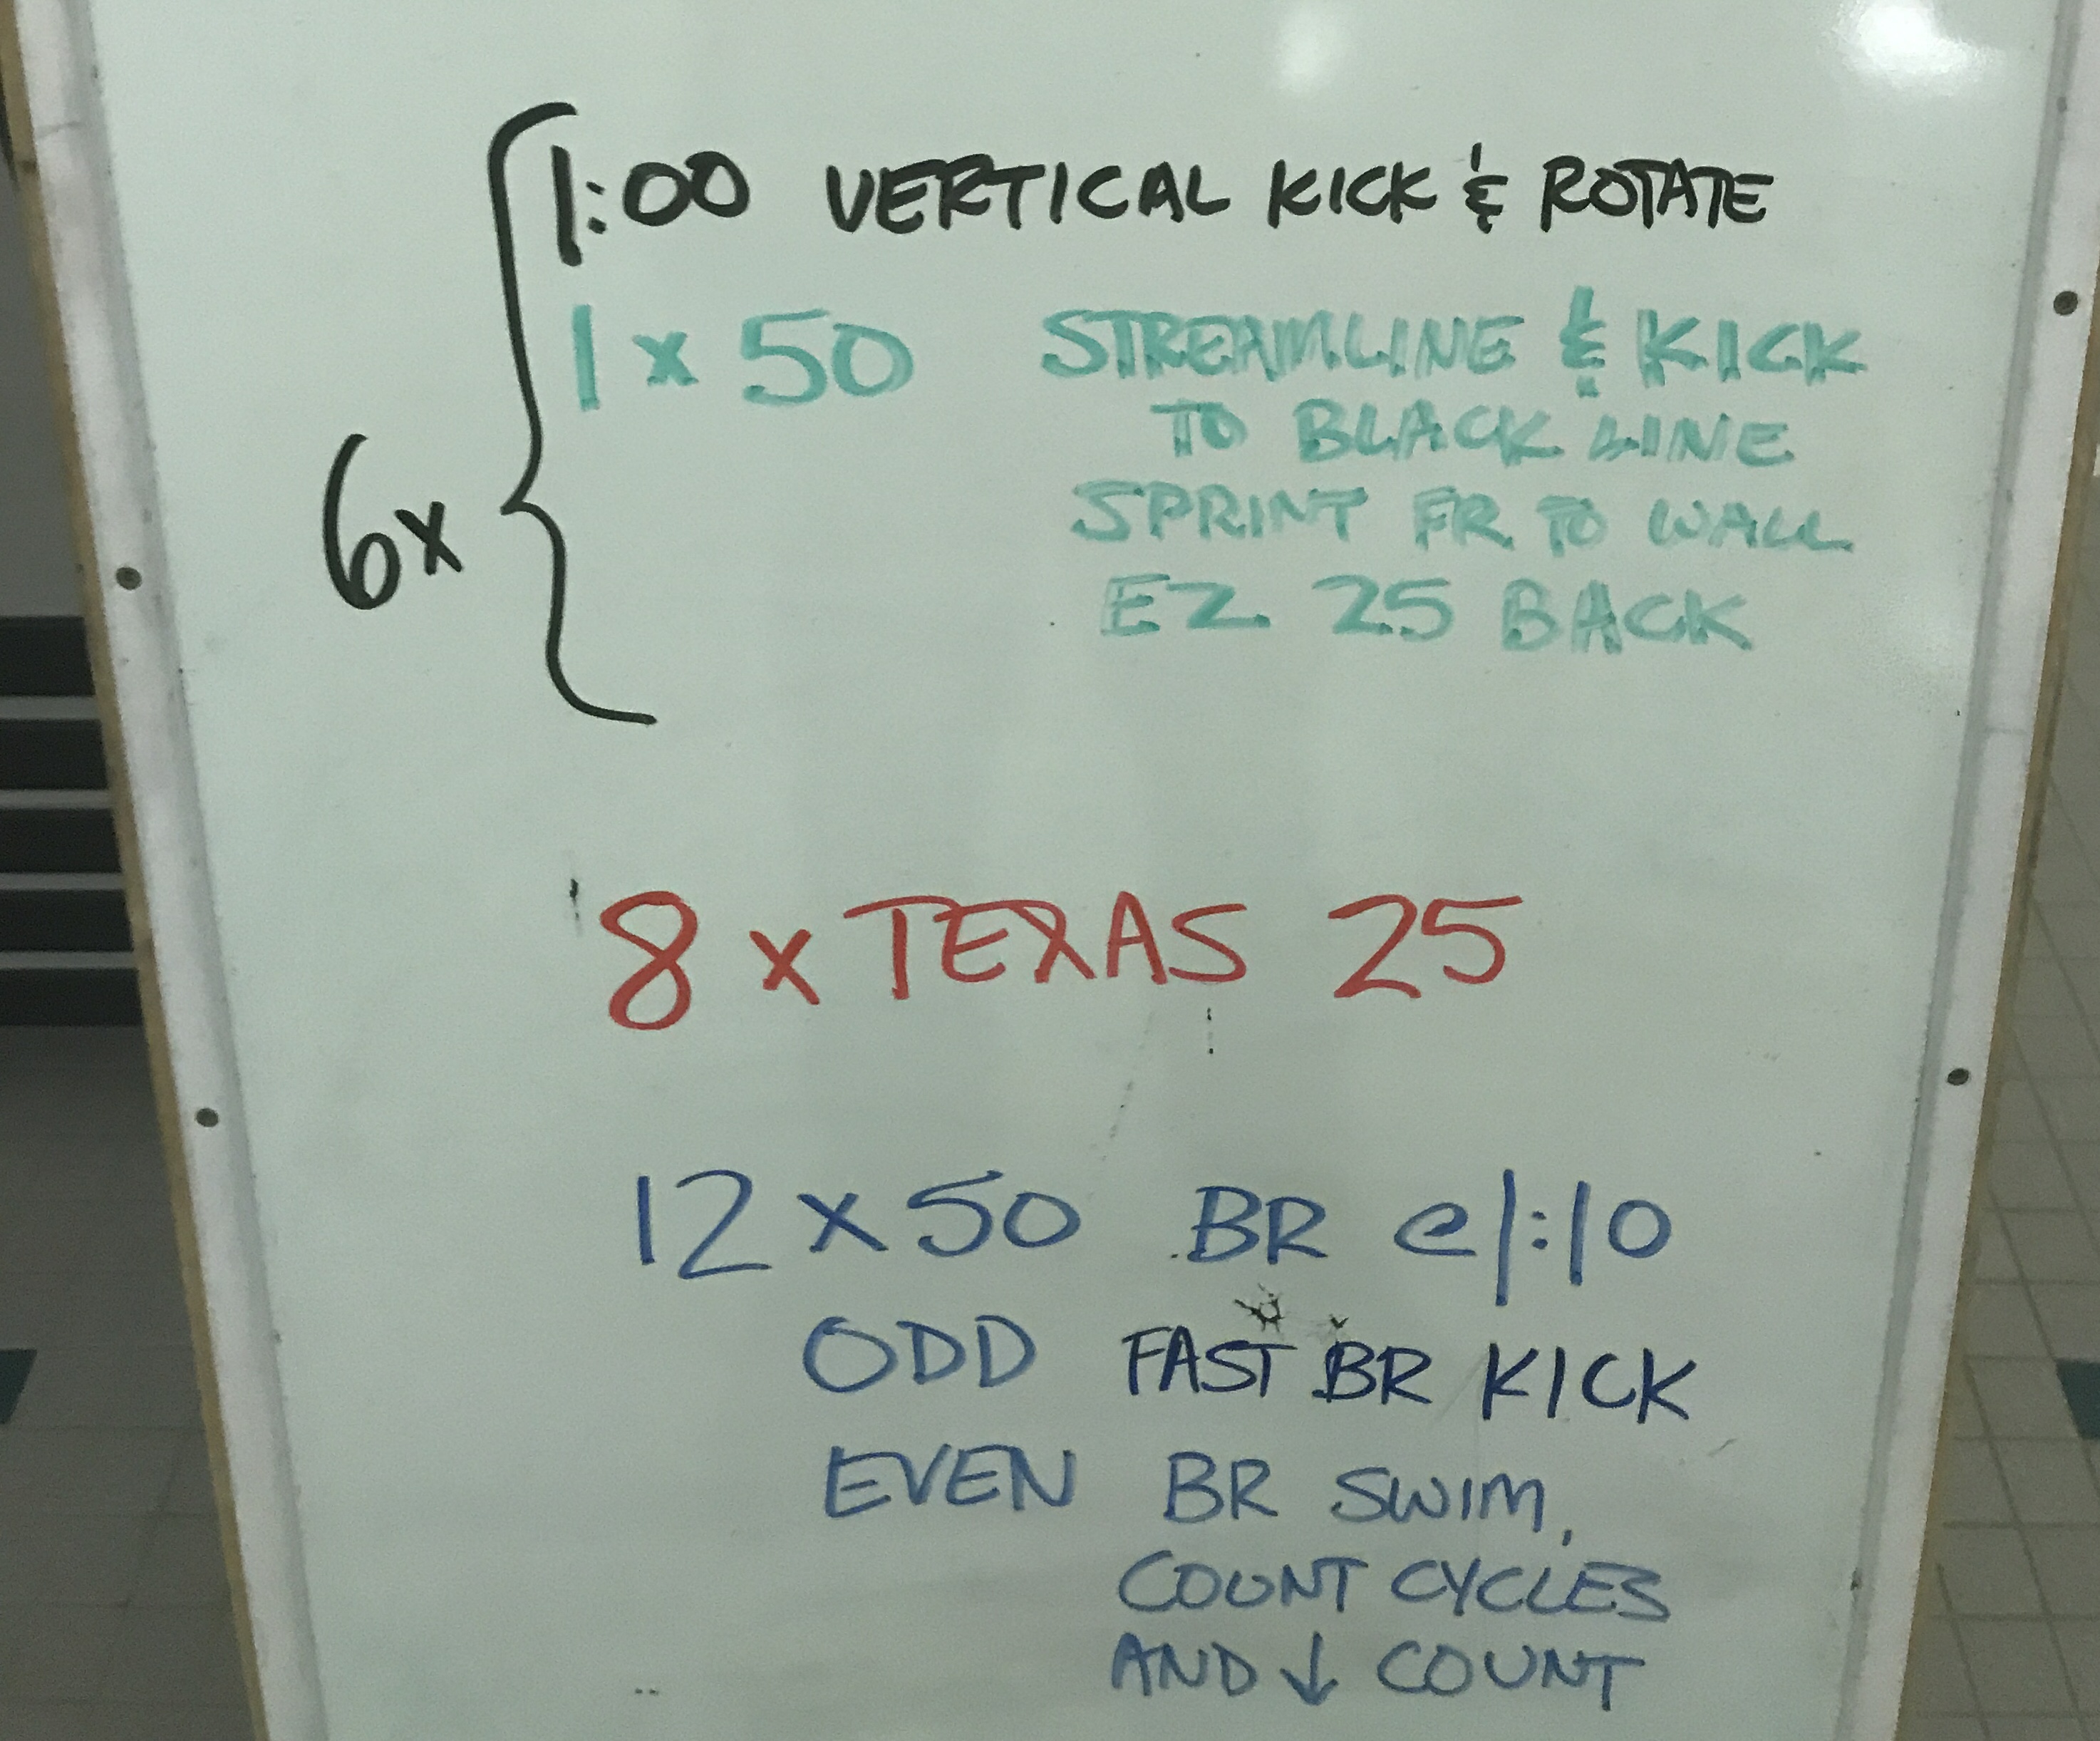 1:00 VERTICAL KICK & ROTATE
1 x 50 STREAMLINE & KICK
TO BLACK LINE
SPRINT FR TO WALL
EZ 25 BACK
6x
8 x TEXAS 25
12 x 50 BR @ 1:10
ODD FAST BR KICK
EVEN BR SWIM,
COUNT CYCLES
AND ↓ COUNT